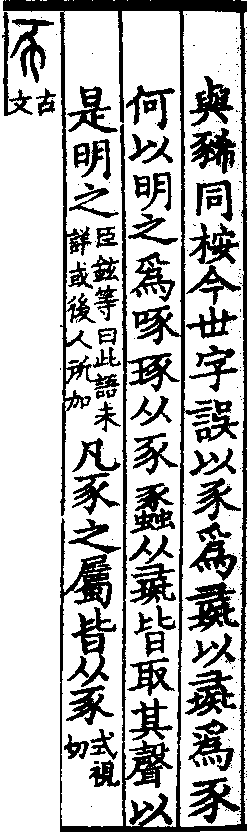 與豨同桉今世字誤以豕爲彘以彘爲豕
何以明之爲啄琢从豕蟸从彘皆取其聲以
是明之臣鉉等曰此語未詳或後人所加凡豕之屬皆从豕式視切
古文